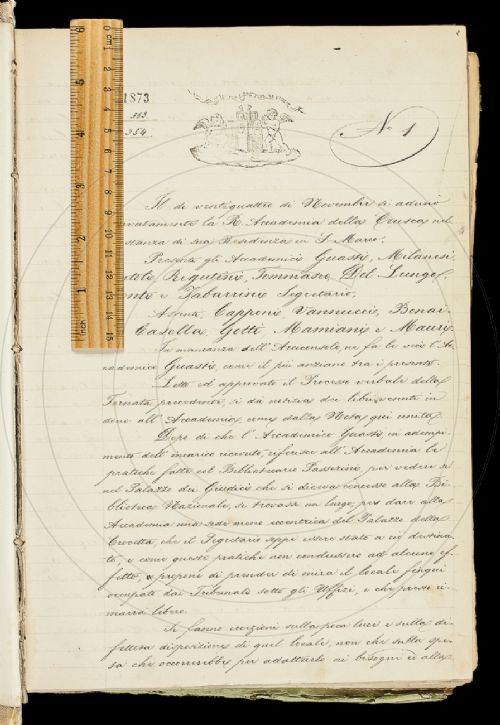 1873
353
354
No 1
Il dì ventiquattro di Novembre si adunò
privatamente la R. Accademia della Crusca nel
stanza di sua Residenza in S. Marco.
Presenti gli Accademici Guasti, Milanesi
Rigutini, Tommaseo, Del Lungo,
Conti e Tabarrini Segretario.
Assenti Capponi, Vannucci, Bonai
Casella, Gotti, Mamiani e Mauri.
In mancanza dell'Arciconsolo, ne fa le veci l'Ac
cademico Guasti, come il più anziano tra i presenti.
Letto ed approvato il Processo verbale della
Tornata precedente, si dà notizia dei libri venuti in
dono all'Accademia, come dalla Nota qui unita.
Dopo di che l'Accademico Guasti, in adempi-
mento dell'incarico ricevuto, riferisce all'Accademia le
pratiche fatte col Bibliotecario Passerini, per vedere se
nel Palazzo dei Giudici che si diceva concesso alla Bi-
blioteca Nazionale, si trovasse un luogo per dare alla
Accademia una sede meno eccentrica del Palazzo della
Crocetta, che il Segretario seppe essere stato a ciò destina-
to, e come queste pratiche non condussero ad alcuno ef-
fetto, e propone di prendere di mira il locale fin qui
occupato dai Tribunali sotto gli Uffizi, e che presto ri-
marrà libero.
Si fanno eccezioni sulla poca luce e sulla di-
fettosa disposizione di quel locale, non che sulla spe-
sa che occorrerebbe per adattarlo ai bisogni e alla